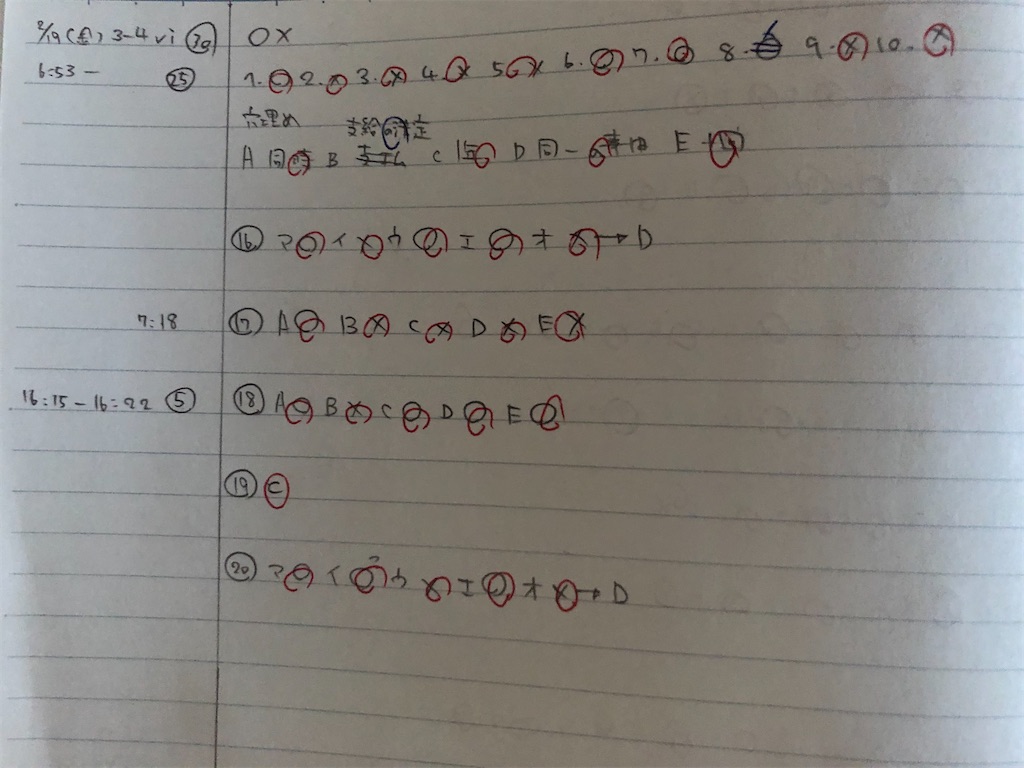 2/19(金) 3-4 vi 29 ○×
6:53 - 25 1. ○ 2. ○ 3. × 4. × 5 × 6. ○ 7. ○ 8. 9. × 10. ×
穴埋め 支給
A 同時 B C D 同一 E
16 ア ○ イ × ウ ○ エ ○ オ × → D
7:18 17 A ○ B × C × D × E ×
16:15 - 16:22 5 18 A ○ B × C ○ D ○ E ○
19 C
20 ア ○ イ ○ ウ × エ ○ オ × → D